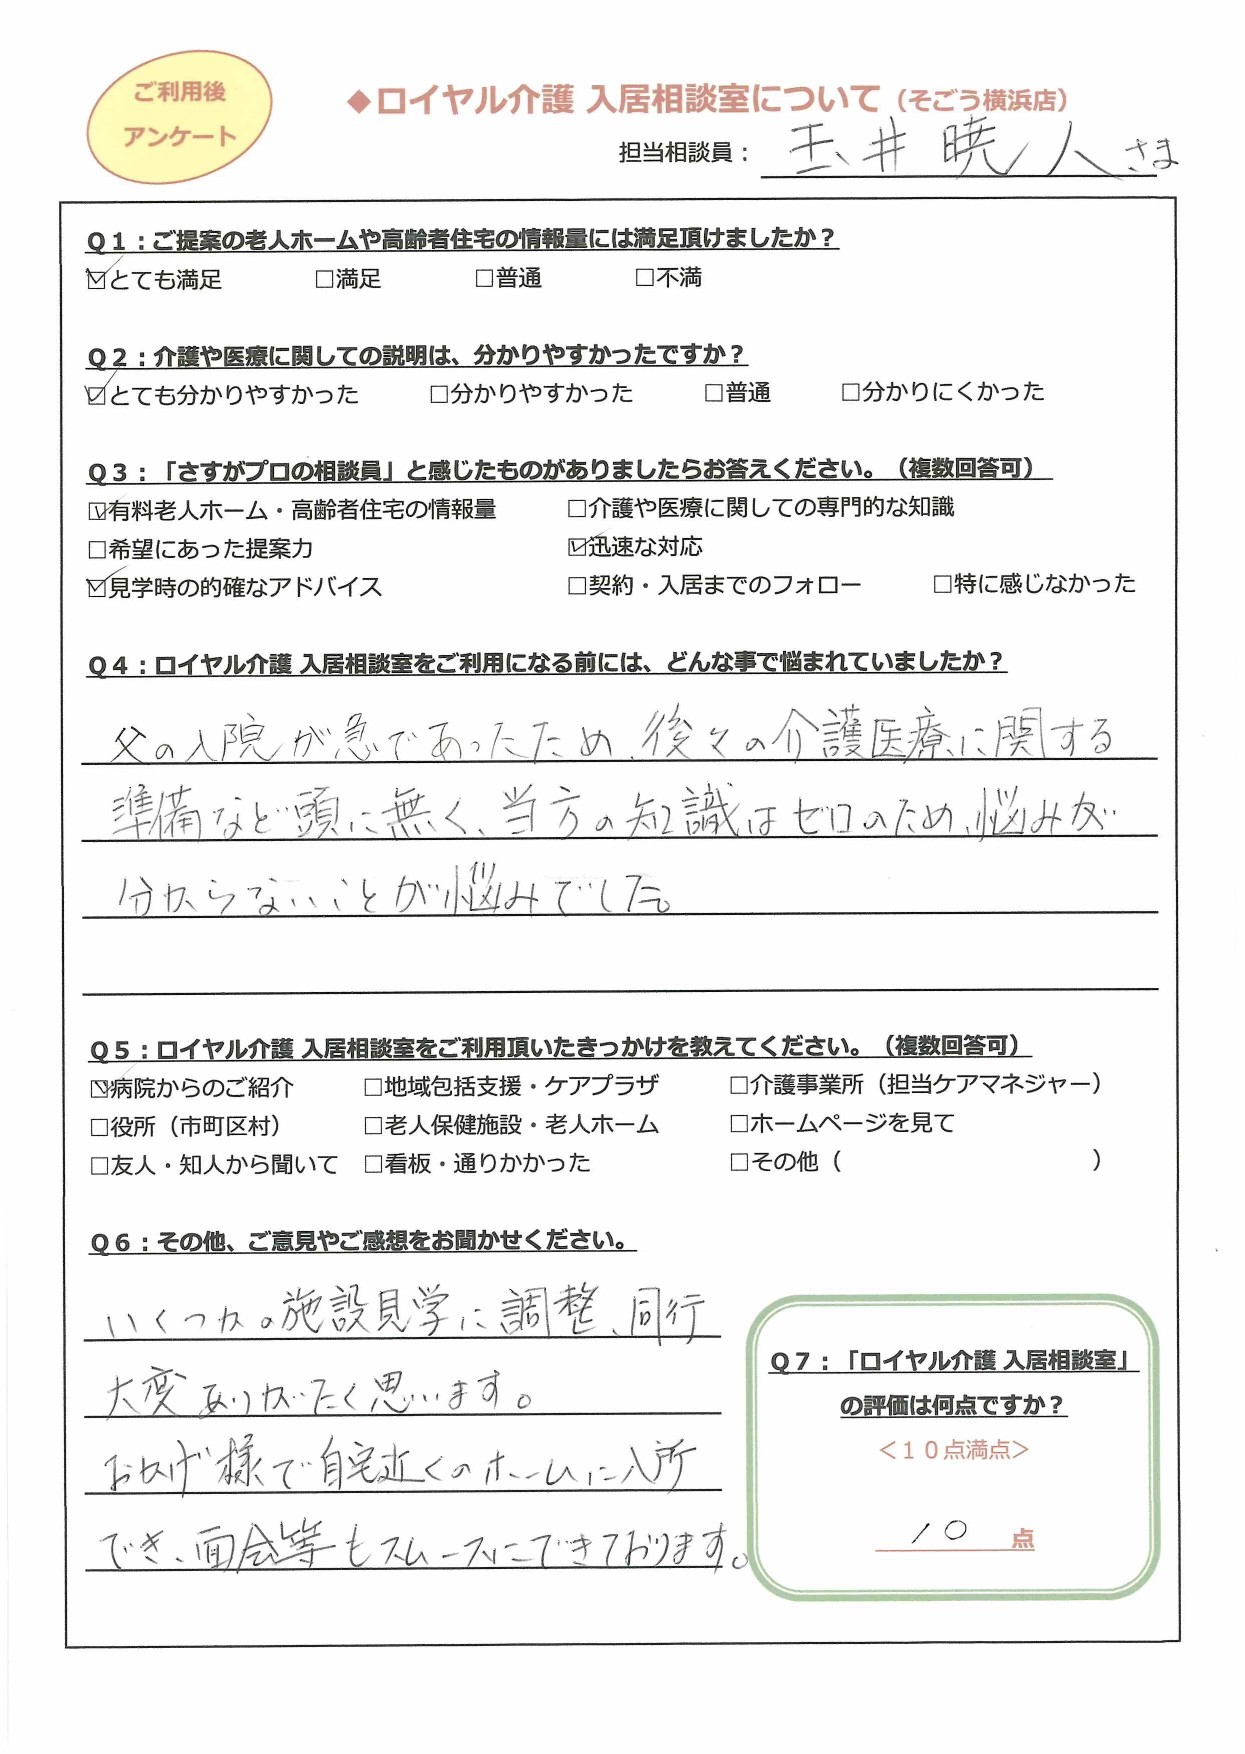 ご利用後
アンケート
◆ロイヤル介護 入居相談室について（そごう横浜店）
担当相談員： 玉井 暁人さま
Ｑ１：ご提案の老人ホームや高齢者住宅の情報量には満足頂けましたか？
☑とても満足 □満足 □普通 □不満
Ｑ２：介護や医療に関しての説明は、分かりやすかったですか？
☑とても分かりやすかった □分かりやすかった □普通 □分かりにくかった
Ｑ３：「さすがプロの相談員」と感じたものがありましたらお答えください。（複数回答可）
☑有料老人ホーム・高齢者住宅の情報量 □介護や医療に関しての専門的な知識
□希望にあった提案力 ☑迅速な対応
☑見学時の的確なアドバイス □契約・入居までのフォロー □特に感じなかった
Ｑ４：ロイヤル介護 入居相談室をご利用になる前には、どんな事で悩まれていましたか？
父の入院が急であったため、後々の介護医療に関する
準備など頭に無く、当方の知識はゼロのため、悩みが
分からないことが悩みでした。
Ｑ５：ロイヤル介護 入居相談室をご利用頂いたきっかけを教えてください。（複数回答可）
☑病院からのご紹介 □地域包括支援・ケアプラザ □介護事業所（担当ケアマネジャー）
□役所（市町区村） □老人保健施設・老人ホーム □ホームページを見て
□友人・知人から聞いて □看板・通りかかった □その他（ ）
Ｑ６：その他、ご意見やご感想をお聞かせください。
いくつかの施設見学に調整、同行
大変ありがたく思います。
おかげ様で自宅近くのホームに入所
でき、面会等もスムースにできております。
Ｑ７：「ロイヤル介護 入居相談室」
の評価は何点ですか？
＜１０点満点＞
10 点